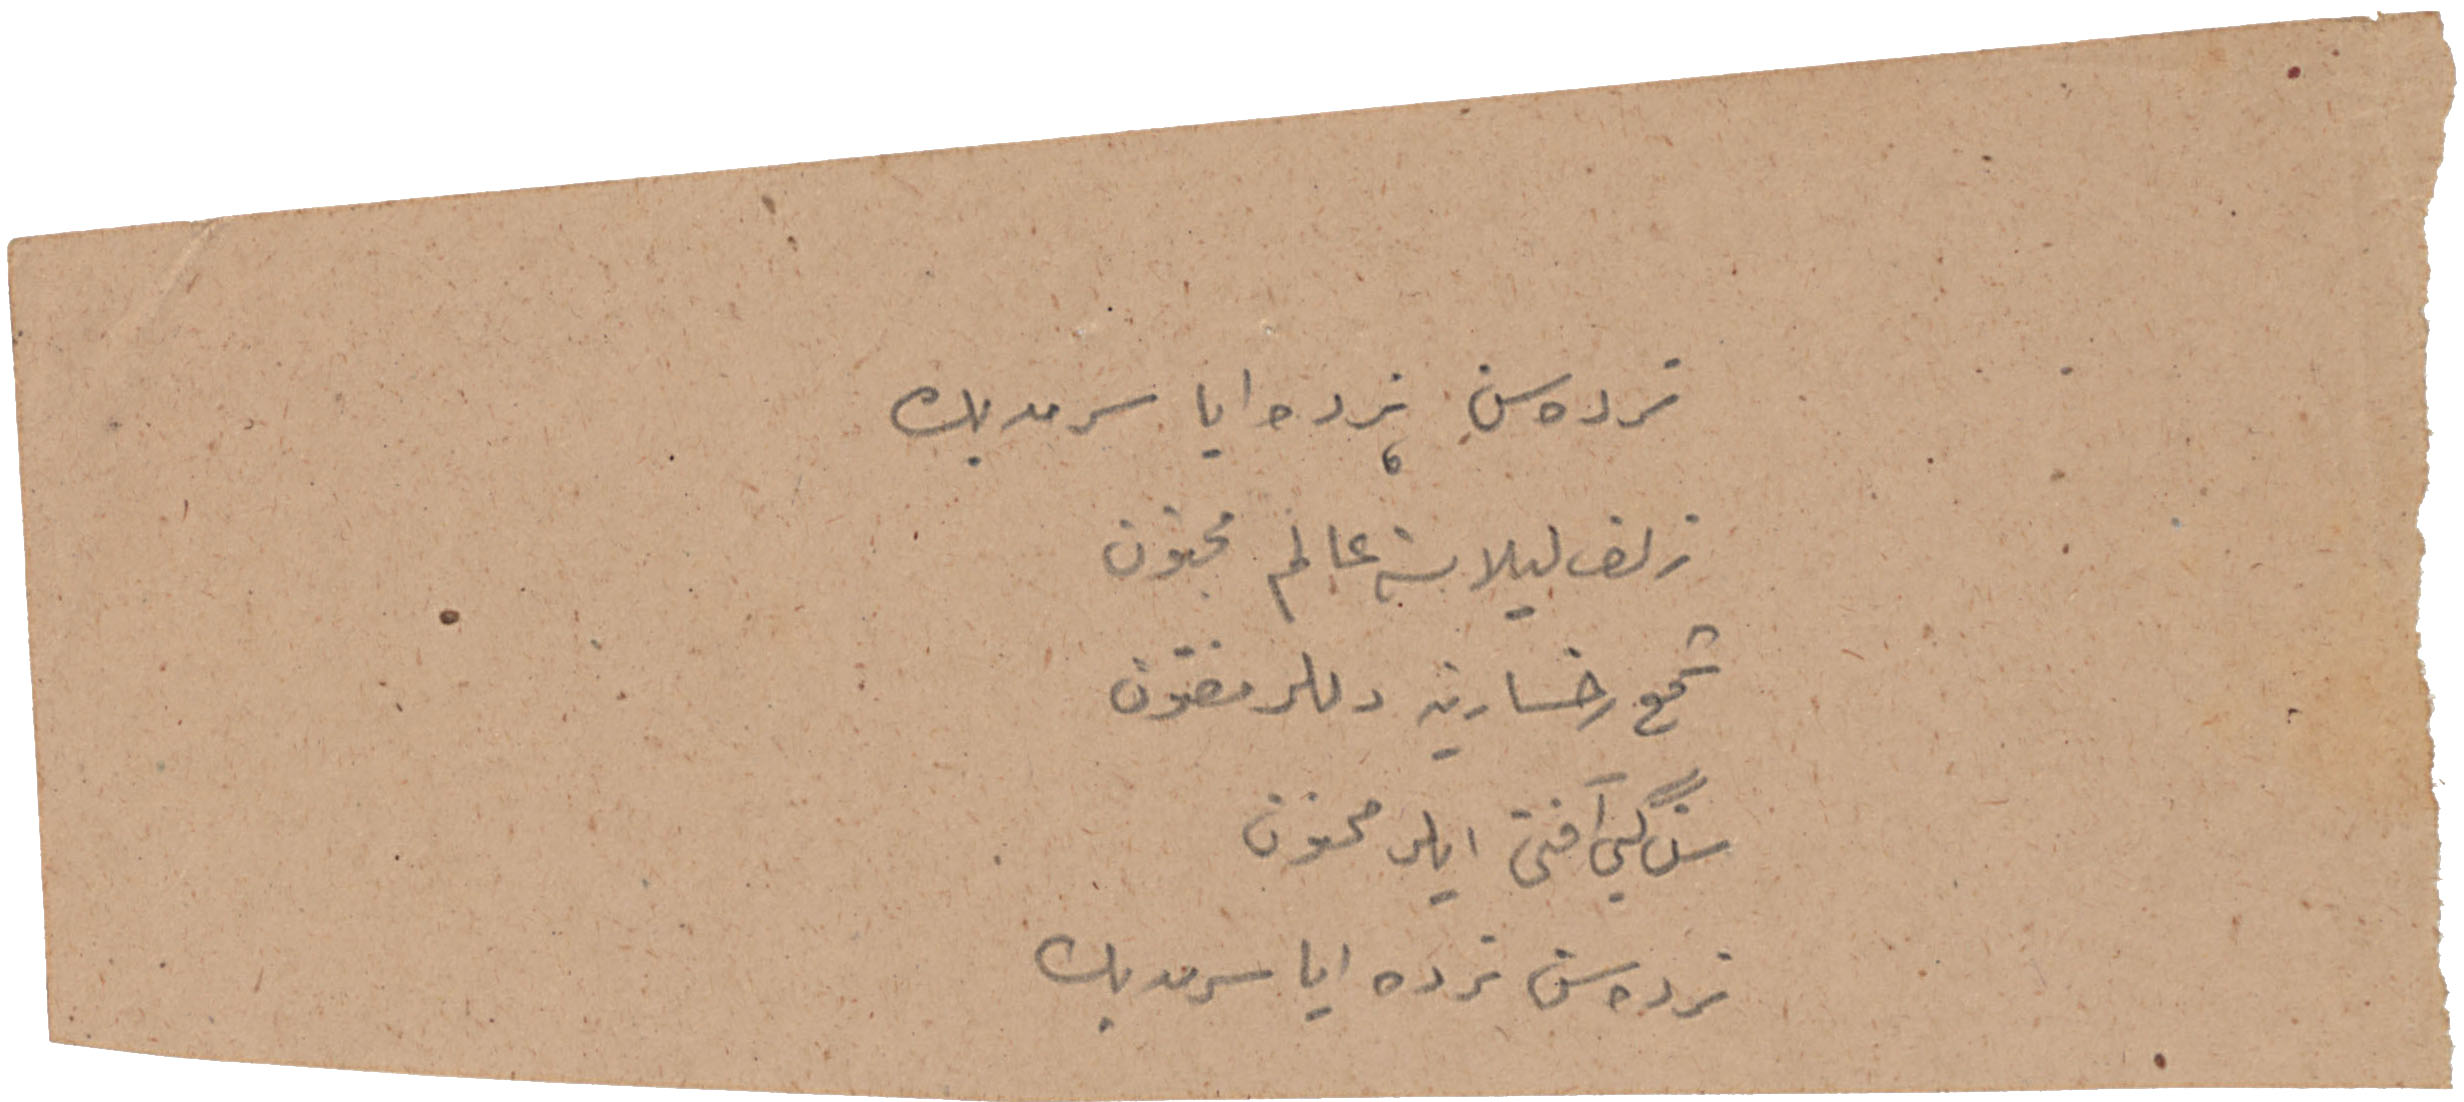 نرده سن نرده ایا سرمد بك
زلف لیلاسنه عالم مجنون
شمع رخسارینه دللر مفتون
سن گبی آفتی ایلر محزون
نرده سن نرده ایا سرمد بك